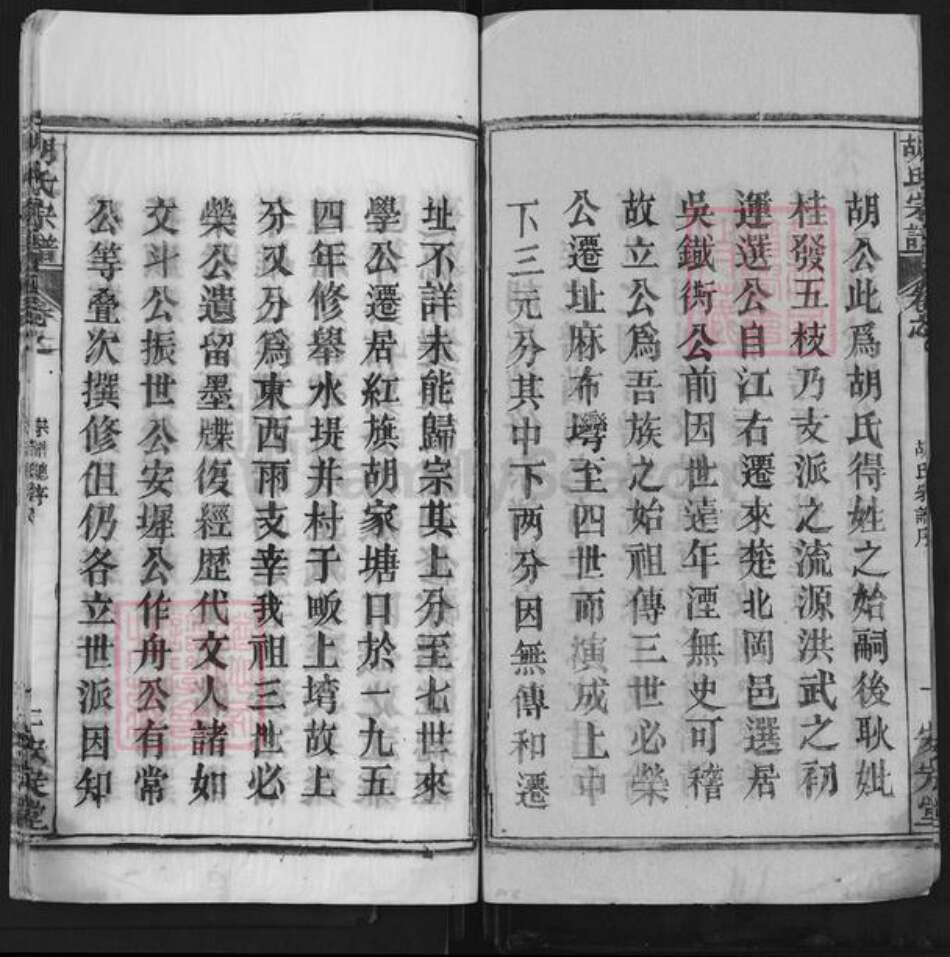 胡氏宗譜
胡公此爲胡氏得姓之始嗣後耿妣
桂發五枝乃支派之流源洪武之初
運選公自江右遷來楚北岡邑選居
吳鐵街公前因世遠年湮無史可稽
故立公爲吾族之始祖傳三世必榮
公遷址麻布塆至四世而演成上中
下三元分其中下两分因無傳和遷
址不詳未能歸宗其上分至七世來
學公遷居紅旗胡家塘口於一九五
四年修舉水堤并村子畈上塆故上
分又分爲東西兩支幸我祖三世必
榮公遺留墨牒復經歷代文人諸如
文斗公振世公安墀公作舟公有常
公等叠次撰修但仍各立世派因知
胡氏宗譜